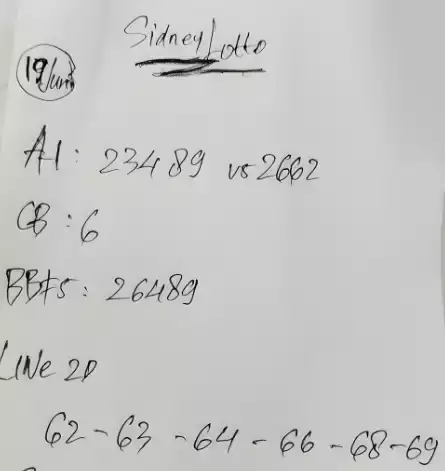 Sidney Lotto
19 Juni
AI: 23489 vs 2662
CB: 6
BBFS: 26489
LINe 2D
62-63-64-66-68-69